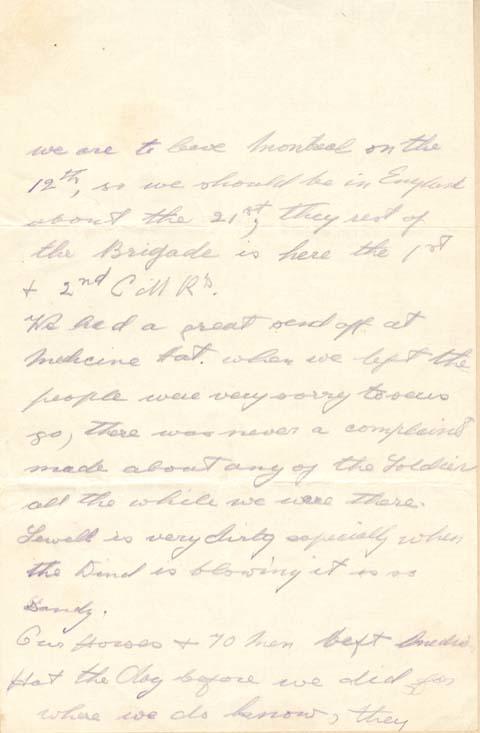 we are to leave Montreal on the
12th, so we should be in England
about the 21st, they rest of
the Brigade is here the 1st
+ 2nd C M R's.
We had a great send off at
Medicine Hat. when we left the
people were very sorry to see us
go, there was never a complaint
made about any of the Soldier
all the while we were there.
Sewell is very dirty especially when
the Wind is blowing it is so
Sandy.
Our Horses + 70 Men left Medi
Hat the day before we did for
where we do know, they